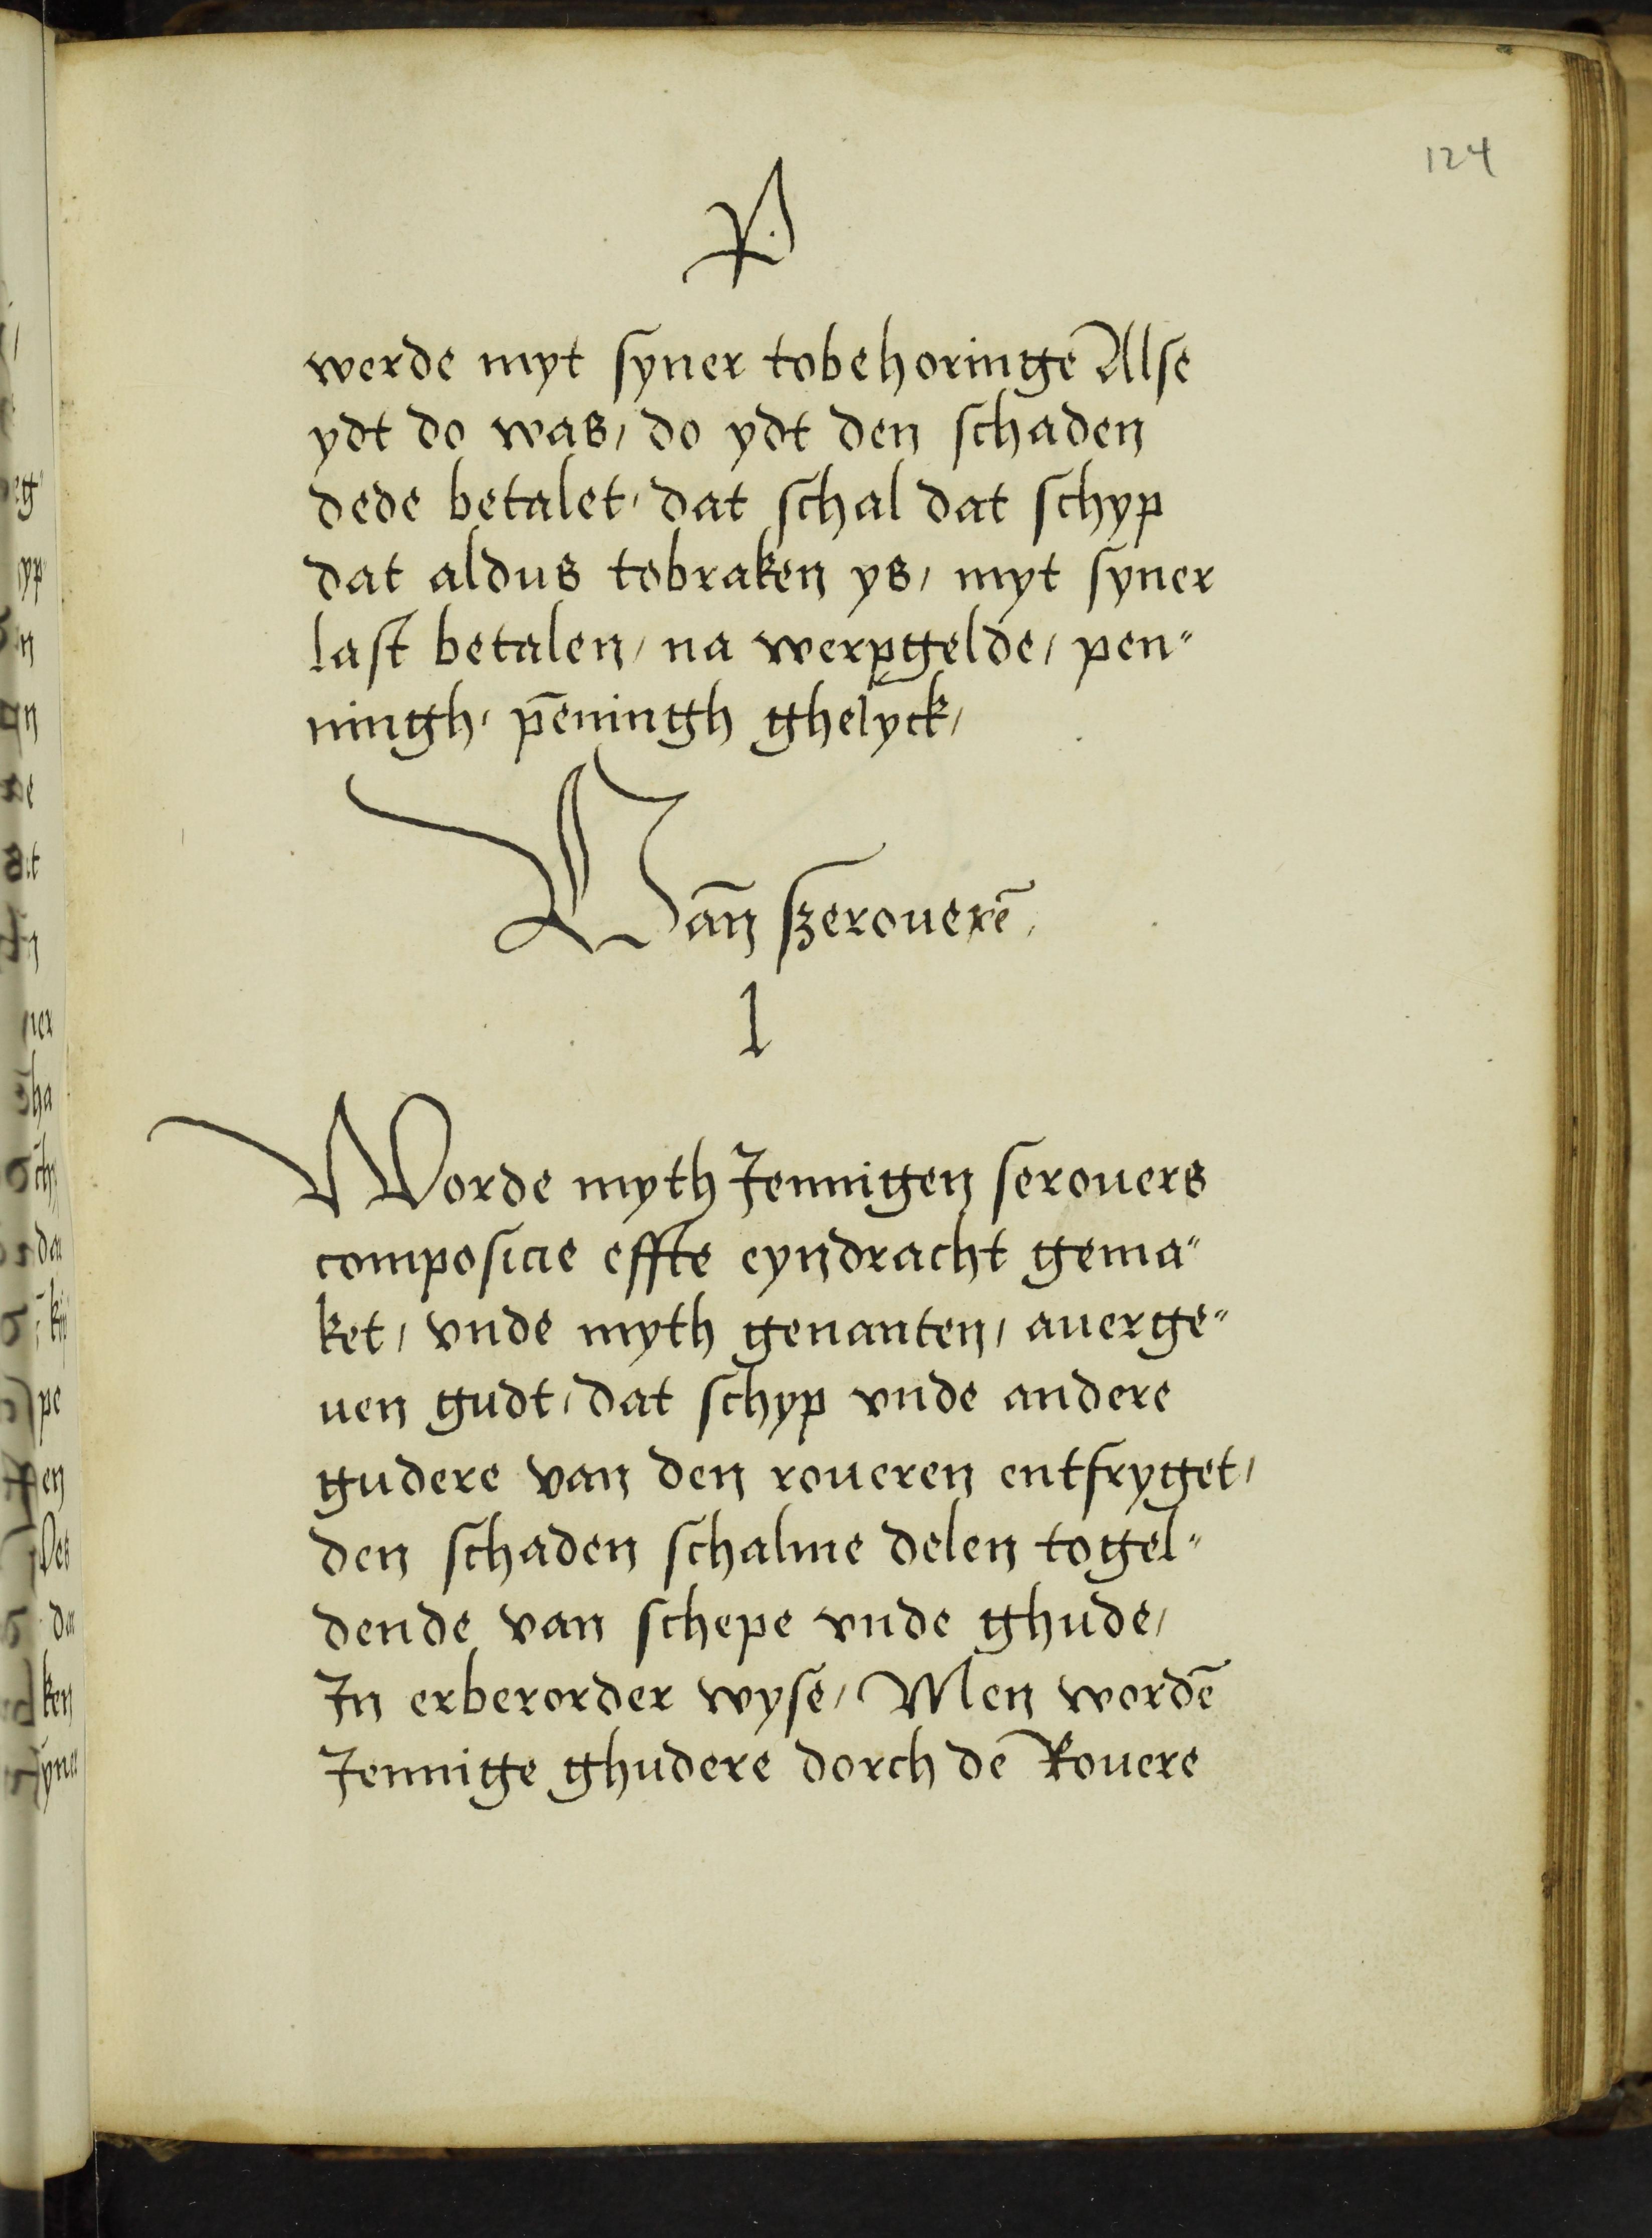 124
P
werde myt syner tobehoringe Alse
ydt do was, do ydt den schaden
dede betalet, dat schal dat schyp
dat aldus tobraken ys, myt syner
last betalen, na werpgelde, pen"
ningh, pe̅ningh ghelyck,
Va̅n szerouere̅,
1
Worde myth Jennigen serouers
composicie effte eyndracht gema"
ket, vnde myth genanten, auerge"
uen gudt, dat schyp vnde andere
gudere van den roueren entfryget,
den schaden schalme delen togel"
dende van schepe vnde ghude,
In erberorder wyse, Men worde̅
Jennige ghudere dorch de̅ Rouere